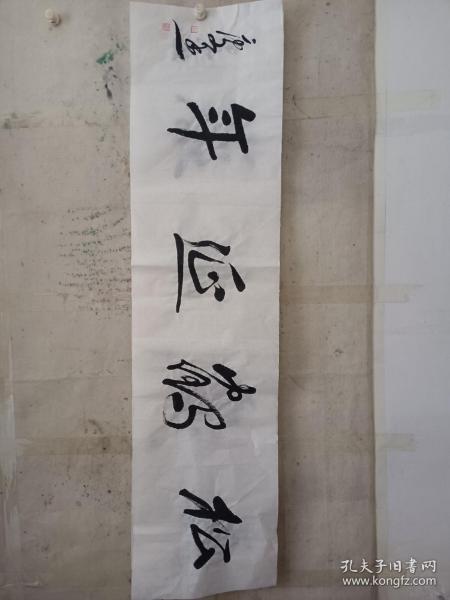 松鹤延年
孔夫子旧书网
www.kongfz.com